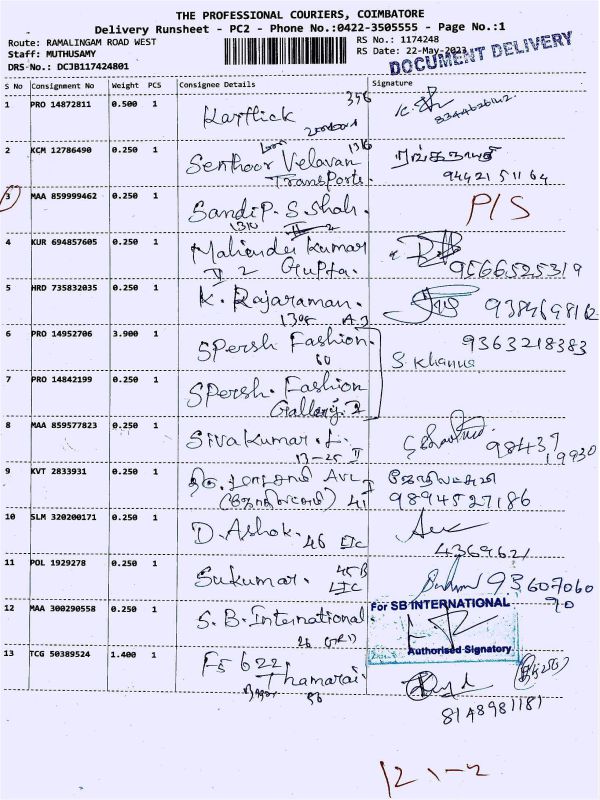 THE PROFESSIONAL COURIERS, COIMBATORE
Delivery Runsheet - PC2 - Phone No.:0422-3505555 - Page No.:1
Route: RAMALINGAM ROAD WEST
RS No.: 1174248
Staff: MUTHUSAMY
RS Date: 22-May-2023
DRS-No.: DCJB117424801
DOCUMENT DELIVERY
S No Consignment No Weight PCS Consignee Details Signature
1 PRO 14872811 0.500 1 Karthick 356
8344626142
2 KCM 12786490 0.250 1 Senthoor Velavan 1316
Transports.
94421 51164
3 MAA 859999462 0.250 1 Sandip. S. Shah. P/S
1310 II-2
4 KUR 694857605 0.250 1 Mahender Kumar
V 2 Gupta. 9566525319
5 HRD 735832035 0.250 1 K. Rajaraman. 9384698162
6 PRO 14952706 3.900 1 SPersh Fashion. 9363218383
60 S. Khanus
7 PRO 14842199 0.250 1 SPersh. Fashion
Gallery. 2
8 MAA 859577823 0.250 1 Sivakumar. L.
13-25 II 98437 19930
9 KVT 2833931 0.250 1
41 9894527186
10 SLM 320200171 0.250 1 D. Ashok. 46 IIC
4369621
11 POL 1929278 0.250 1 Sukumar. 45B 93607060
IIC 70
12 MAA 300290558 0.250 1 S. B. International. For SB INTERNATIONAL
26
Authorised Signatory
13 TCG 50389524 1.400 1 FS 622
Thamarai.
56 8148981181
121-2